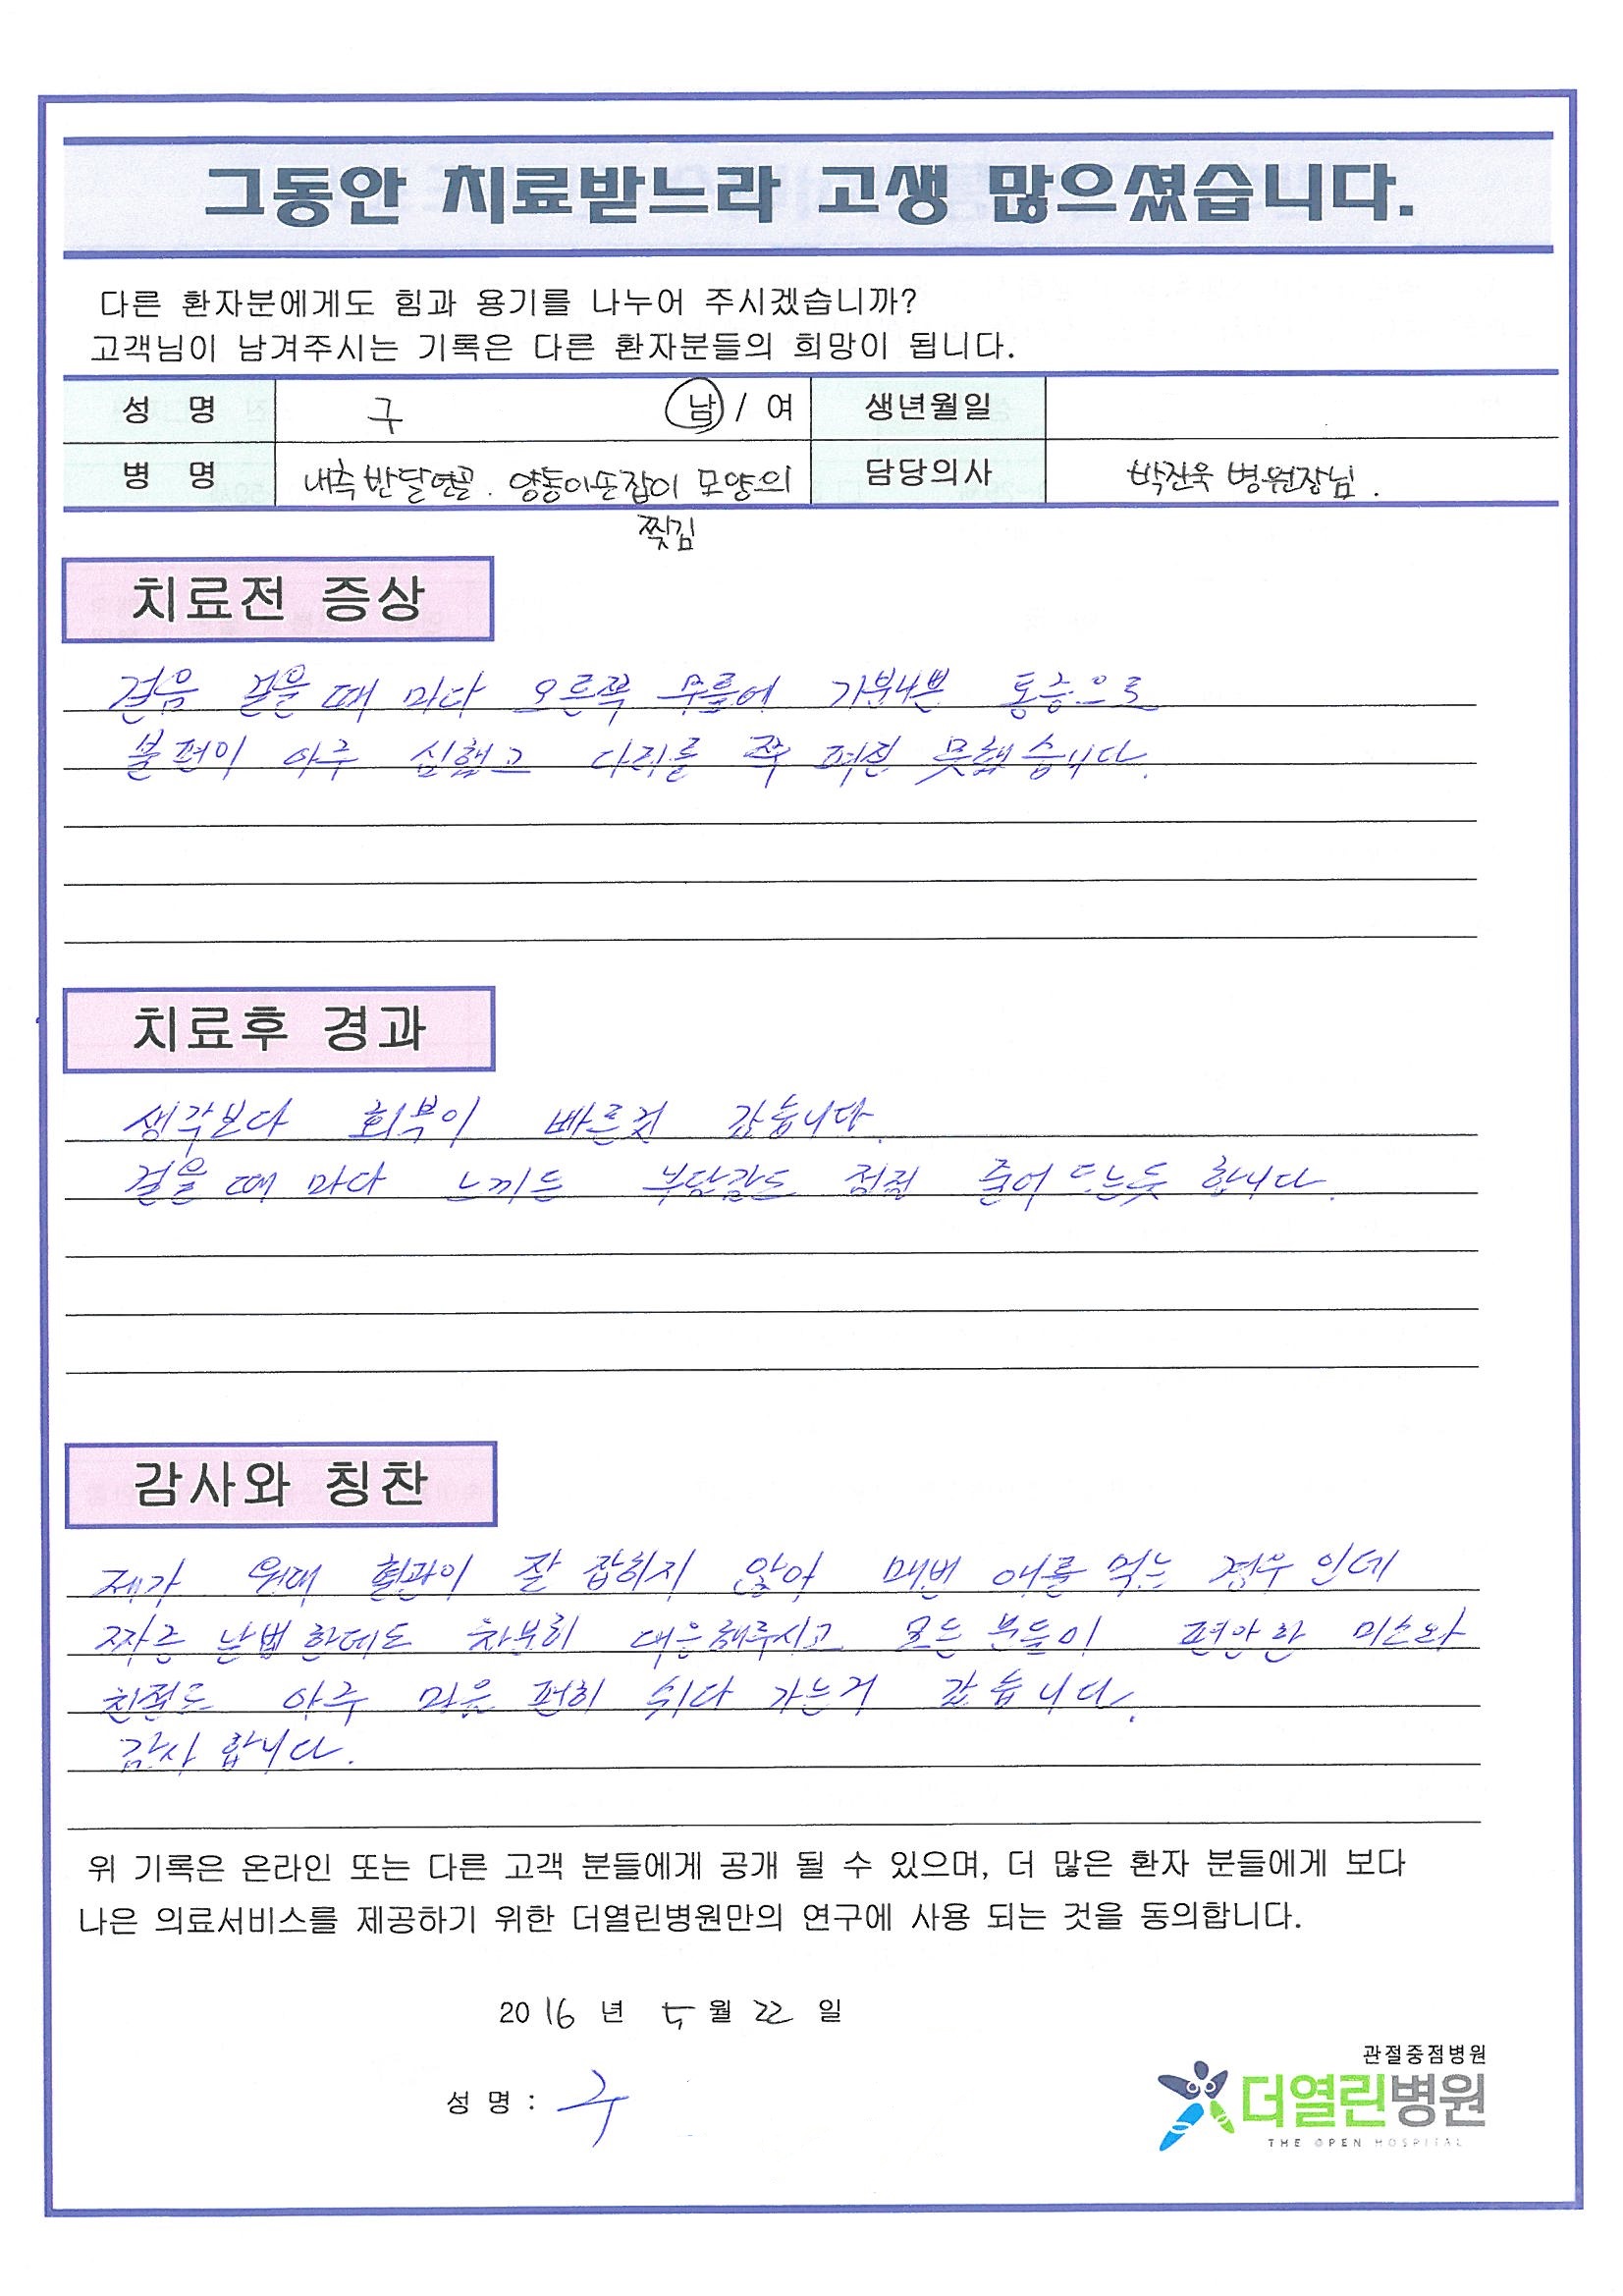 그동안 치료받느라 고생 많으셨습니다.
다른 환자분에게도 힘과 용기를 나누어 주시겠습니까?
고객님이 남겨주시는 기록은 다른 환자분들의 희망이 됩니다.
성 명 구 남 / 여 생년월일
병 명 내측 반달연골. 양동이손잡이 모양의 담당의사 박진욱 병원장님.
찢김
치료전 증상
걸음 걸을 때 마다 오른쪽 무릎에 기분나쁜 통증으로
불편이 아주 심했고 다리를 쭉 펴질 못했습니다.
치료후 경과
생각보다 회복이 빠른것 같습니다.
걸을 때 마다 느끼는 부담감도 점점 줄어 드는듯 합니다.
감사와 칭찬
제가 원래 혈관이 잘 잡히지 않아 매번 애를 먹는 경우 인데
짜증 날법 한데도 차분히 대응해주시고 모든 분들이 편안한 미소와
친절로 아주 마음 편히 쉬다 가는거 같습니다.
감사 합니다.
위 기록은 온라인 또는 다른 고객 분들에게 공개 될 수 있으며, 더 많은 환자 분들에게 보다
나은 의료서비스를 제공하기 위한 더열린병원만의 연구에 사용 되는 것을 동의합니다.
2016 년 5 월 22 일
성 명 : 구
관절중점병원
더열린병원
THE OPEN HOSPITAL